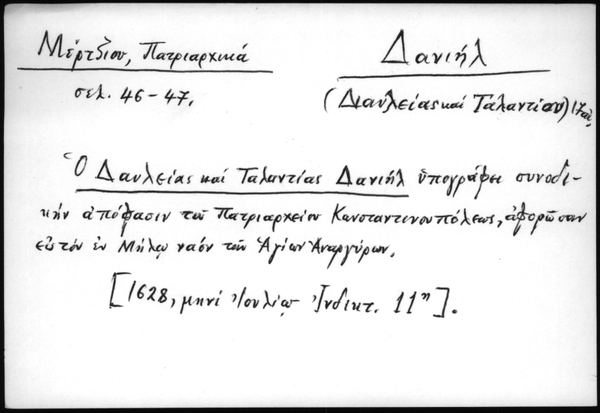 Μέρτζιου, Πατριαρχικά
σελ. 46-47.
Δανιήλ
(Διαυλείας καί Ταλαντίου) 17 αἰ.
Ὁ Δαυλείας καί Ταλαντίας Δανιήλ ὑπογράφει συνοδι-
κήν ἀπόφασιν τοῦ Πατριαρχείου Κωνσταντινουπόλεως, ἀφορῶσαν
εἰς τόν ἐν Μήλῳ ναόν τῶν Ἁγίων Ἀναργύρων.
[1628, μηνί Ἰουλίῳ Ἰνδικτ. 11η].